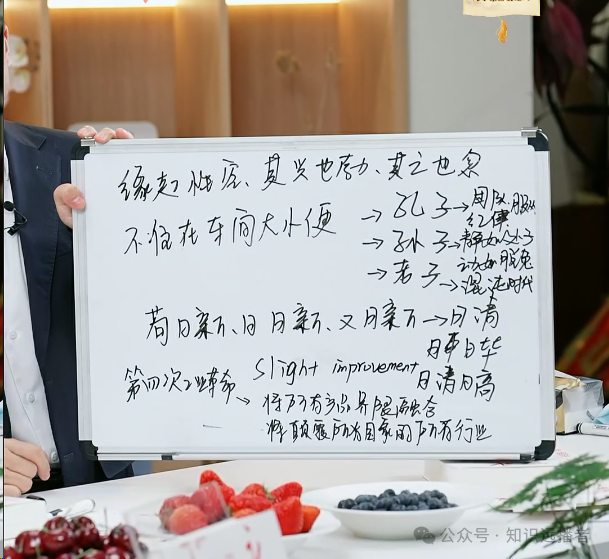 缘起性空、其兴也勃、其亡也忽
不准在车间大小便
→孔子→团队、服从
红脾
→孙子→静如处子
动如脱兔
→老子→混沌时代
苟日新、日日新、又日新→日清
日事日毕
slight improvement 日清日高
第四次工业革命→将所有产品界限融合
将颠覆所有国家的所有行业
公众号·知识运播者